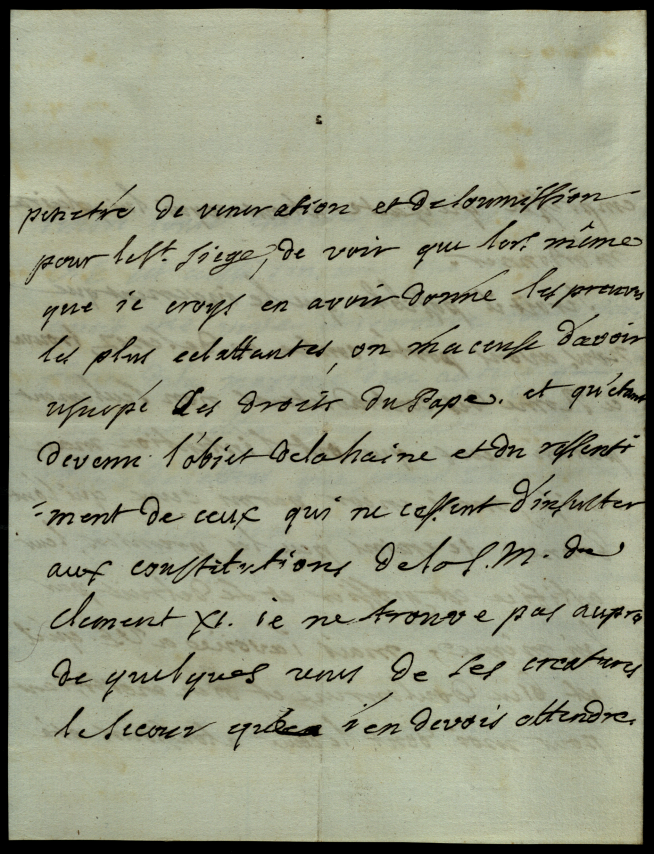 penetré de veneration et de soumission
pour le St. siege, de voir que lors même
que ie croys en avoir donné les preuves
les plus eclattantes, on m'acense d'avoir
usurpé les droits du Pape. et qu'étant
devenu l'obiet de la haine et du ressenti
=ment de ceux qui ne cessent d'insulter
aux constitutions de la S. M. de
Clement XI. ie ne trouve pas aupres
de quelques unes de ses creatures
le secour que i'en devois attendre.